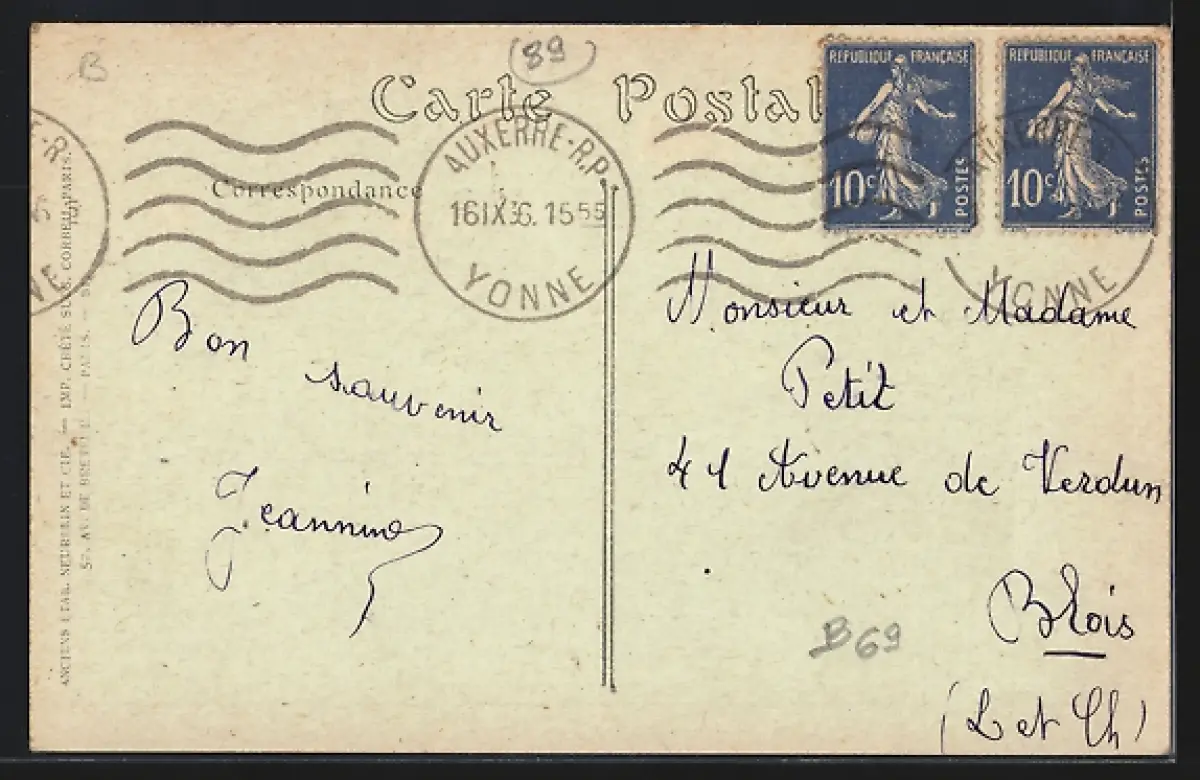 B
(89)
Carte Postal
RÉPUBLIQUE FRANÇAISE
10c
POSTES
RÉPUBLIQUE FRANÇAISE
10c
POSTES
Correspondance
AUXERRE-R.P.
16 IX 36. 15 55
YONNE
AUXERRE
YONNE
Bon
souvenir
Jeannine
Monsieur et Madame
Petit
41 Avenue de Verdun
Blois
(L et Ch)
B69
ANCIENS ETAB. NEURDEIN ET CIE. — IMP. CRÉTÉ SUCC. CORBEIL, PARIS.
52, AV. DE BRETEUIL — PARIS.